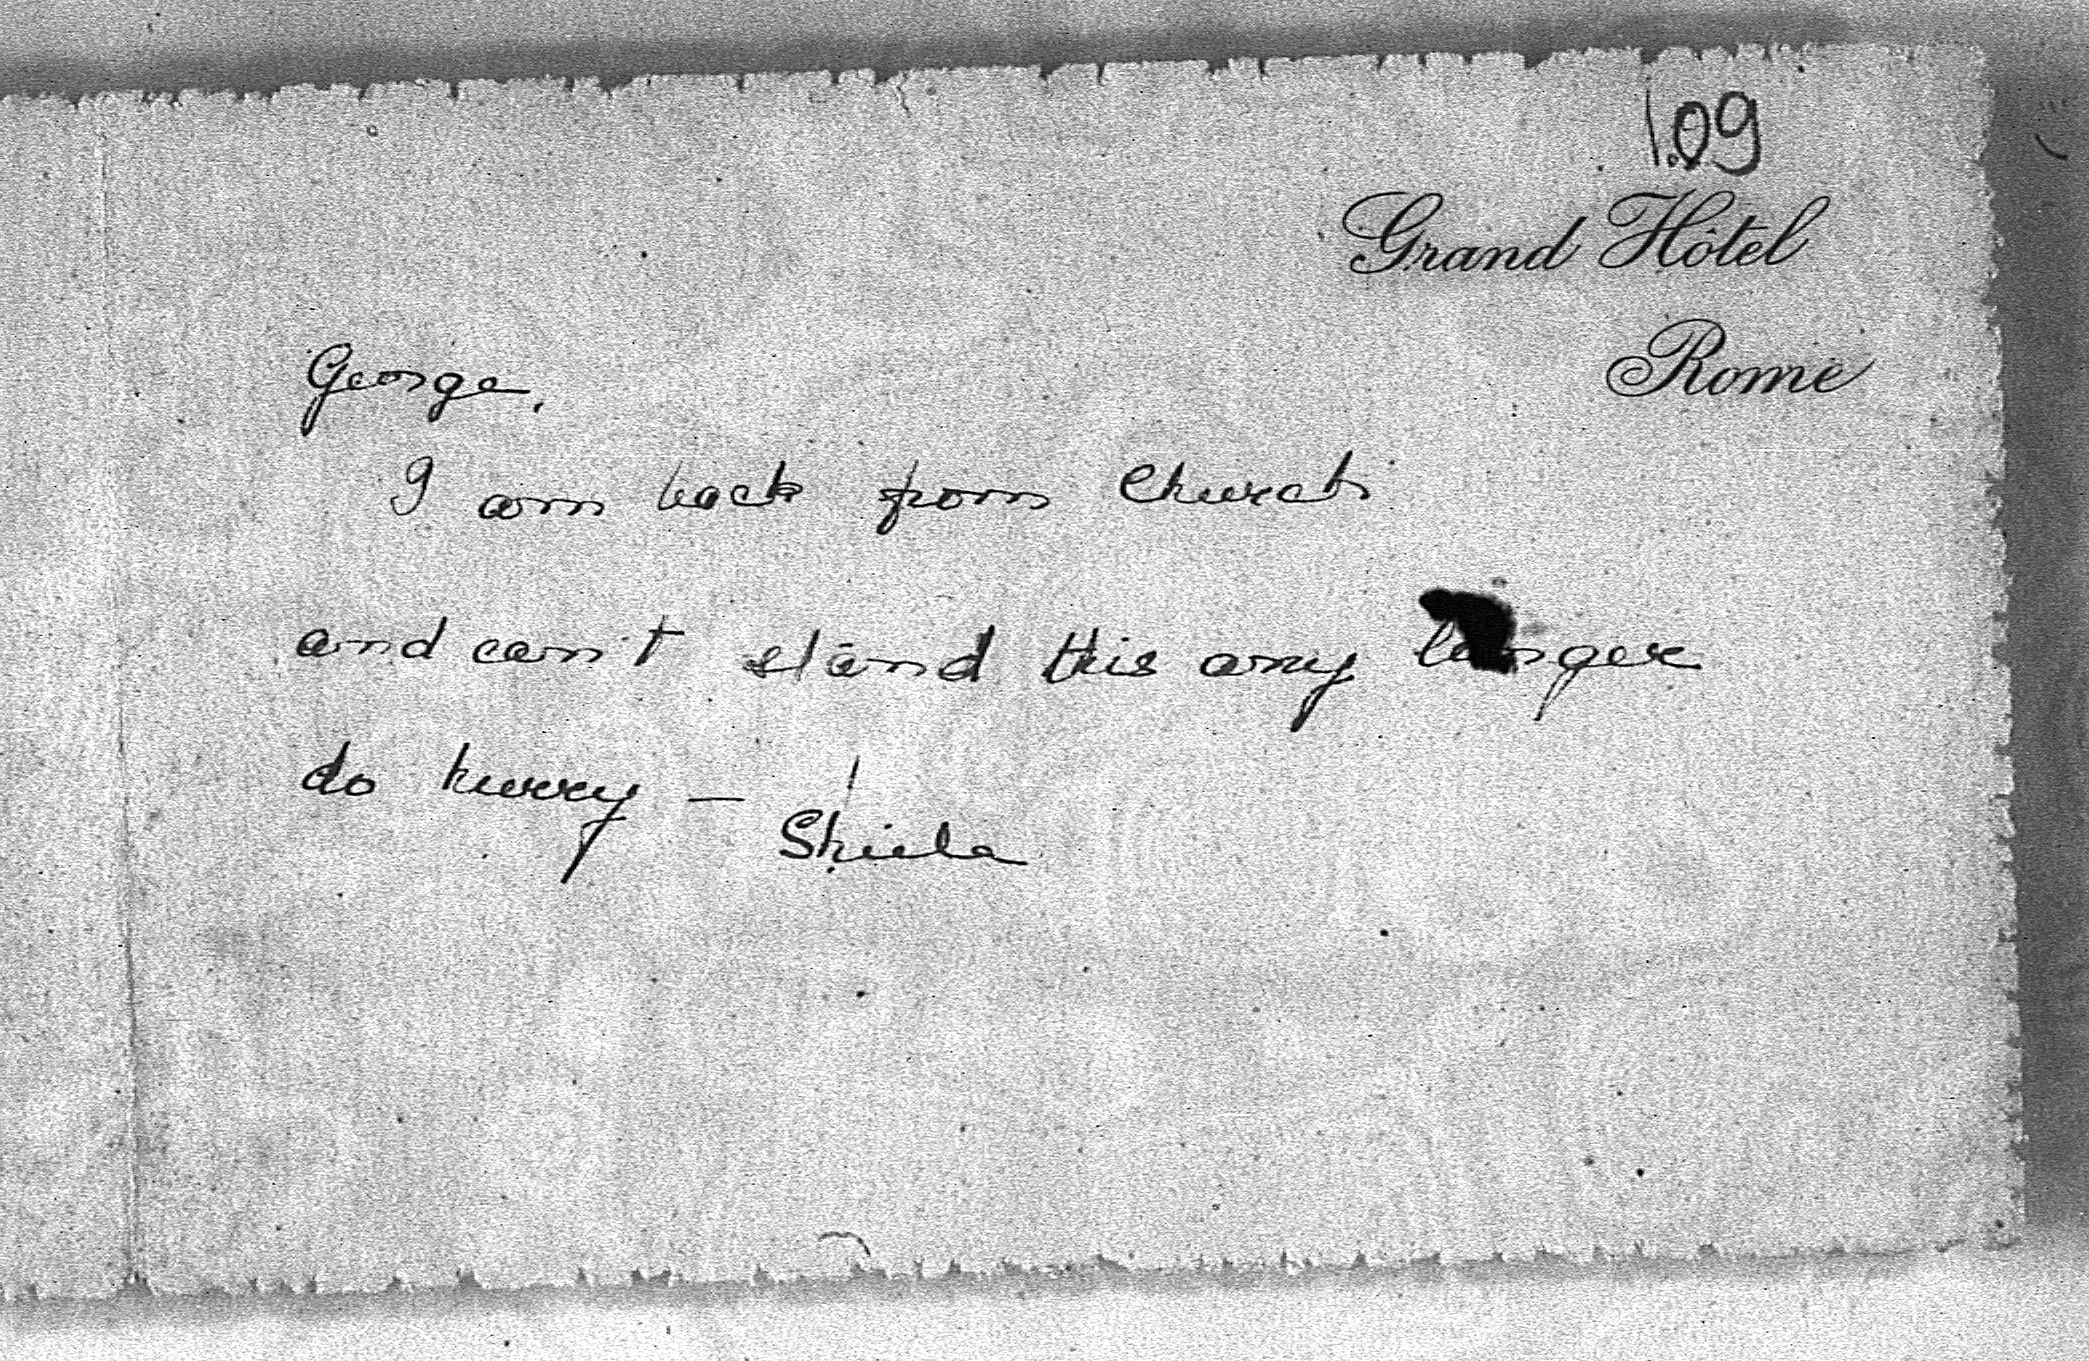 109
Grand Hôtel
Rome
George,
I am back from Church
and can't stand this any longer
do hurry –
Shiela